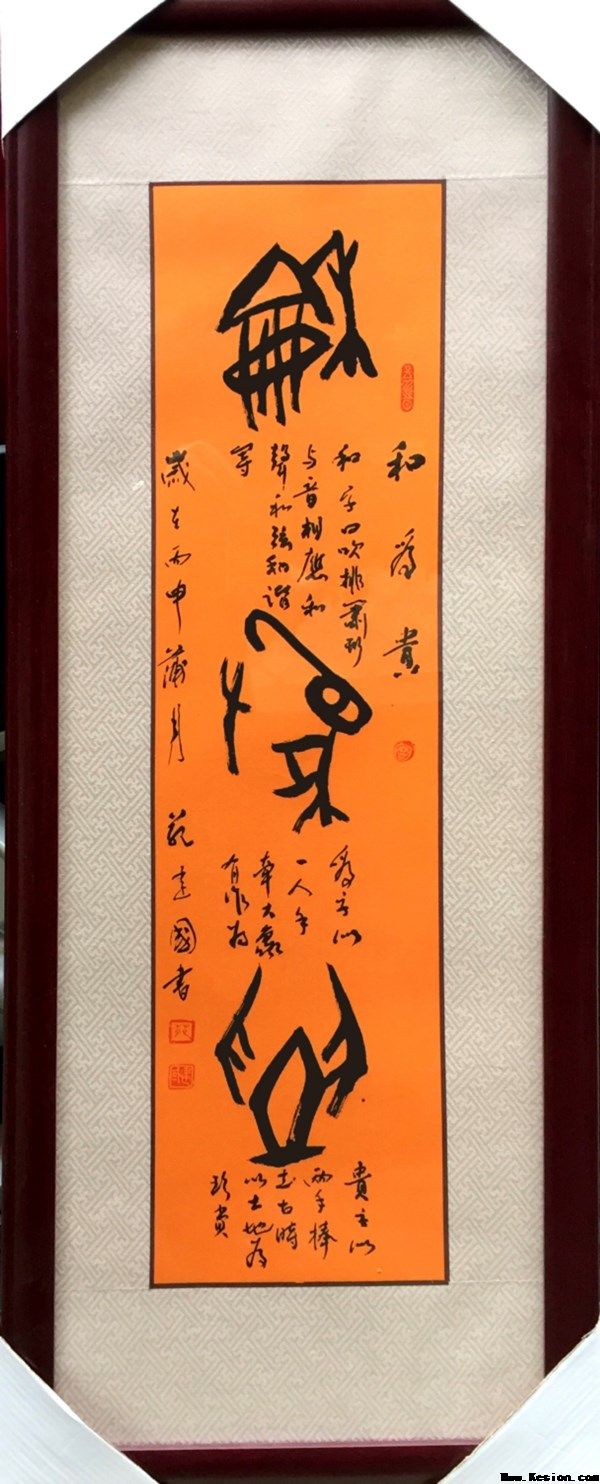 龢
和為貴
和字曰吹排簫形
与音相應和
聲和弦和諧
等
為
為字似
一人手
牽大象
有作為
貴
貴字似
兩手捧
土古時
以土地為
珍貴
歲在丙申蒲月 范建國書
Www.Kesion.com